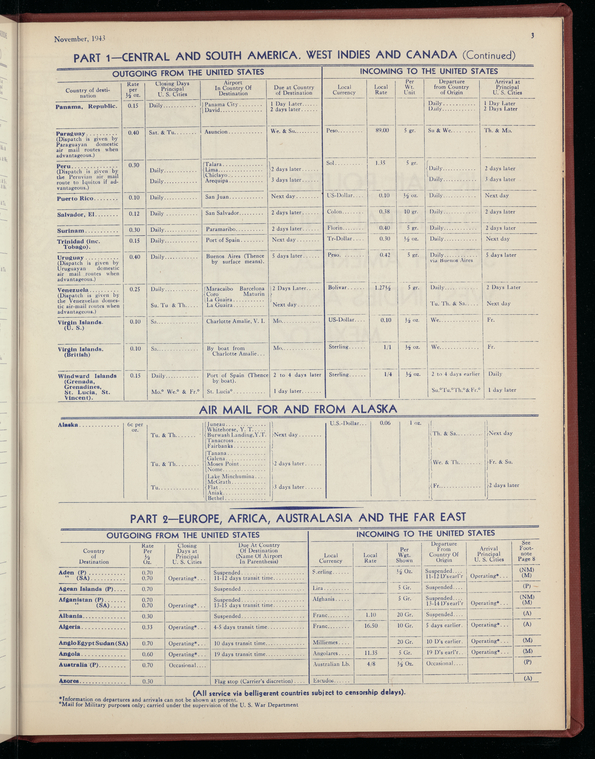 November, 1943
3
PART 1—CENTRAL AND SOUTH AMERICA, WEST INDIES AND CANADA (Continued)
OUTGOING FROM THE UNITED STATES INCOMING TO THE UNITED STATES
Country of desti-
nation
Rate
per
½ oz.
Closing Days
Principal
U. S. Cities
Airport
In Country Of
Destination
Due at Country
of Destination
Local
Currency
Local
Rate
Per
Wt.
Unit
Departure
from Country
of Origin
Arrival at
Principal
U. S. Cities
Panama, Republic. 0.15 Daily Panama City 1 Day Later Daily 1 Day Later
David 2 days later Daily 2 Days Later
Paraguay 0.40 Sat. & Tu. Asuncion We. & Su. Peso 89.00 5 gr. Su & We. Th. & Mo.
(Dispatch is given by
Paraguayan domestic
air mail routes when
advantageous.)
Peru 0.30 Talara Sol 1.35 5 gr.
(Dispatch is given by
the Peruvian air mail
route to Iquitos if ad-
vantageous.)
Daily Lima 2 days later Daily 2 days later
Chiclayo
Daily Arequipa 3 days later Daily 3 days later
Puerto Rico 0.10 Daily San Juan Next day US-Dollar 0.10 ½ oz. Daily Next day
Salvador, El 0.12 Daily San Salvador 2 days later Colon 0.38 10 gr. Daily 2 days later
Surinam 0.30 Daily Paramaribo 2 days later Florin 0.40 5 gr. Daily 2 days later
Trinidad (inc.
Tobago). 0.15 Daily Port of Spain Next day Tr-Dollar 0.30 ½ oz. Daily Next day
Uruguay 0.40 Daily Buenos Aires (Thence
by surface means). 5 days later Peso 0.42 5 gr. Daily
via Buenos Aires 5 days later
(Dispatch is given by
Uruguayan domestic
air mail routes when
advantageous.)
Venezuela 0.25 Daily Maracaibo Barcelona 2 Days Later Bolivar 1.27½ 5 gr. Daily 2 Days Later
(Dispatch is given by
the Venezuelan domes-
tic air-mail routes when
advantageous.)
Coro Maturin
La Guaira
Su. Tu & Th. La Guaira Next day Tu. Th. & Su. Next day
Virgin Islands.
(U. S.) 0.10 Su. Charlotte Amalie, V. I. Mo. US-Dollar 0.10 ½ oz. We. Fr.
Virgin Islands.
(British) 0.10 Su. By boat from
Charlotte Amalie Mo. Sterling 1/1 ½ oz. We. Fr.
Windward Islands
(Grenada,
Grenadines,
St. Lucia, St.
Vincent). 0.15 Daily Port of Spain (Thence
by boat). 2 to 4 days later Sterling 1/4 ½ oz. 2 to 4 days earlier Daily
Mo.* We.* & Fr.* St. Lucia* 1 day later Su.*Tu.*Th.*&Fr.* 1 day later
AIR MAIL FOR AND FROM ALASKA
Alaska 6c per
oz. U.S.-Dollar 0.06 1 oz.
Tu. & Th. Juneau
Whitehorse, Y. T.
Burwash Landing, Y.T.
Tanacross
Fairbanks Next day Th. & Sa. Next day
Tu. & Th. Tanana
Galena
Moses Point
Nome 2 days later We. & Th. Fr. & Su.
Tu. Lake Minchumina
McGrath
Flat
Aniak
Bethel 3 days later Fr. 2 days later
PART 2—EUROPE, AFRICA, AUSTRALASIA AND THE FAR EAST
OUTGOING FROM THE UNITED STATES INCOMING TO THE UNITED STATES
Country
of
Destination
Rate
Per
½
Oz.
Closing
Days at
Principal
U. S. Cities
Due At Country
Of Destination
(Name Of Airport
In Parenthesis)
Local
Currency
Local
Rate
Per
Wgt.
Shown
Departure
From
Country Of
Origin
Arrival
Principal
U. S. Cities
See
Foot-
note
Page 8
Aden (P) 0.70 Suspended Sterling ½ Oz. Suspended (NM)
" (SA) 0.70 Operating* 11-12 days transit time 11-12 D'searl'r Operating* (M)
Agean Islands (P) 0.70 Suspended Lira 5 Gr. Suspended (P)
Afganistan (P) 0.70 Suspended Afghania 5 Gr. Suspended (NM)
" (SA) 0.70 Operating* 13-15 days transit time 13-14 D'searl'r Operating* (M)
Albania 0.30 Suspended Franc 1.10 20 Gr. Suspended (A)
Algeria 0.33 Operating* 4-5 days transit time Franc 16.50 10 Gr. 5 days earlier Operating* (A)
Anglo Egypt Sudan (SA) 0.70 Operating* 10 days transit time Milliemes 20 Gr. 10 D's earlier Operating* (M)
Angola 0.60 Operating* 19 days transit time Angolares 11.35 5 Gr. 19 D's earl'r Operating* (M)
Australia (P) 0.70 Occasional Australian Lb. 4/8 ½ Oz. Occasional (P)
Azores 0.30 Flag stop (Carrier's discretion) Escudos (A)
(All service via belligerent countries subject to censorship delays).
*Information on departures and arrivals can not be shown at present.
*Mail for Military purposes only; carried under the supervision of the U. S. War Department